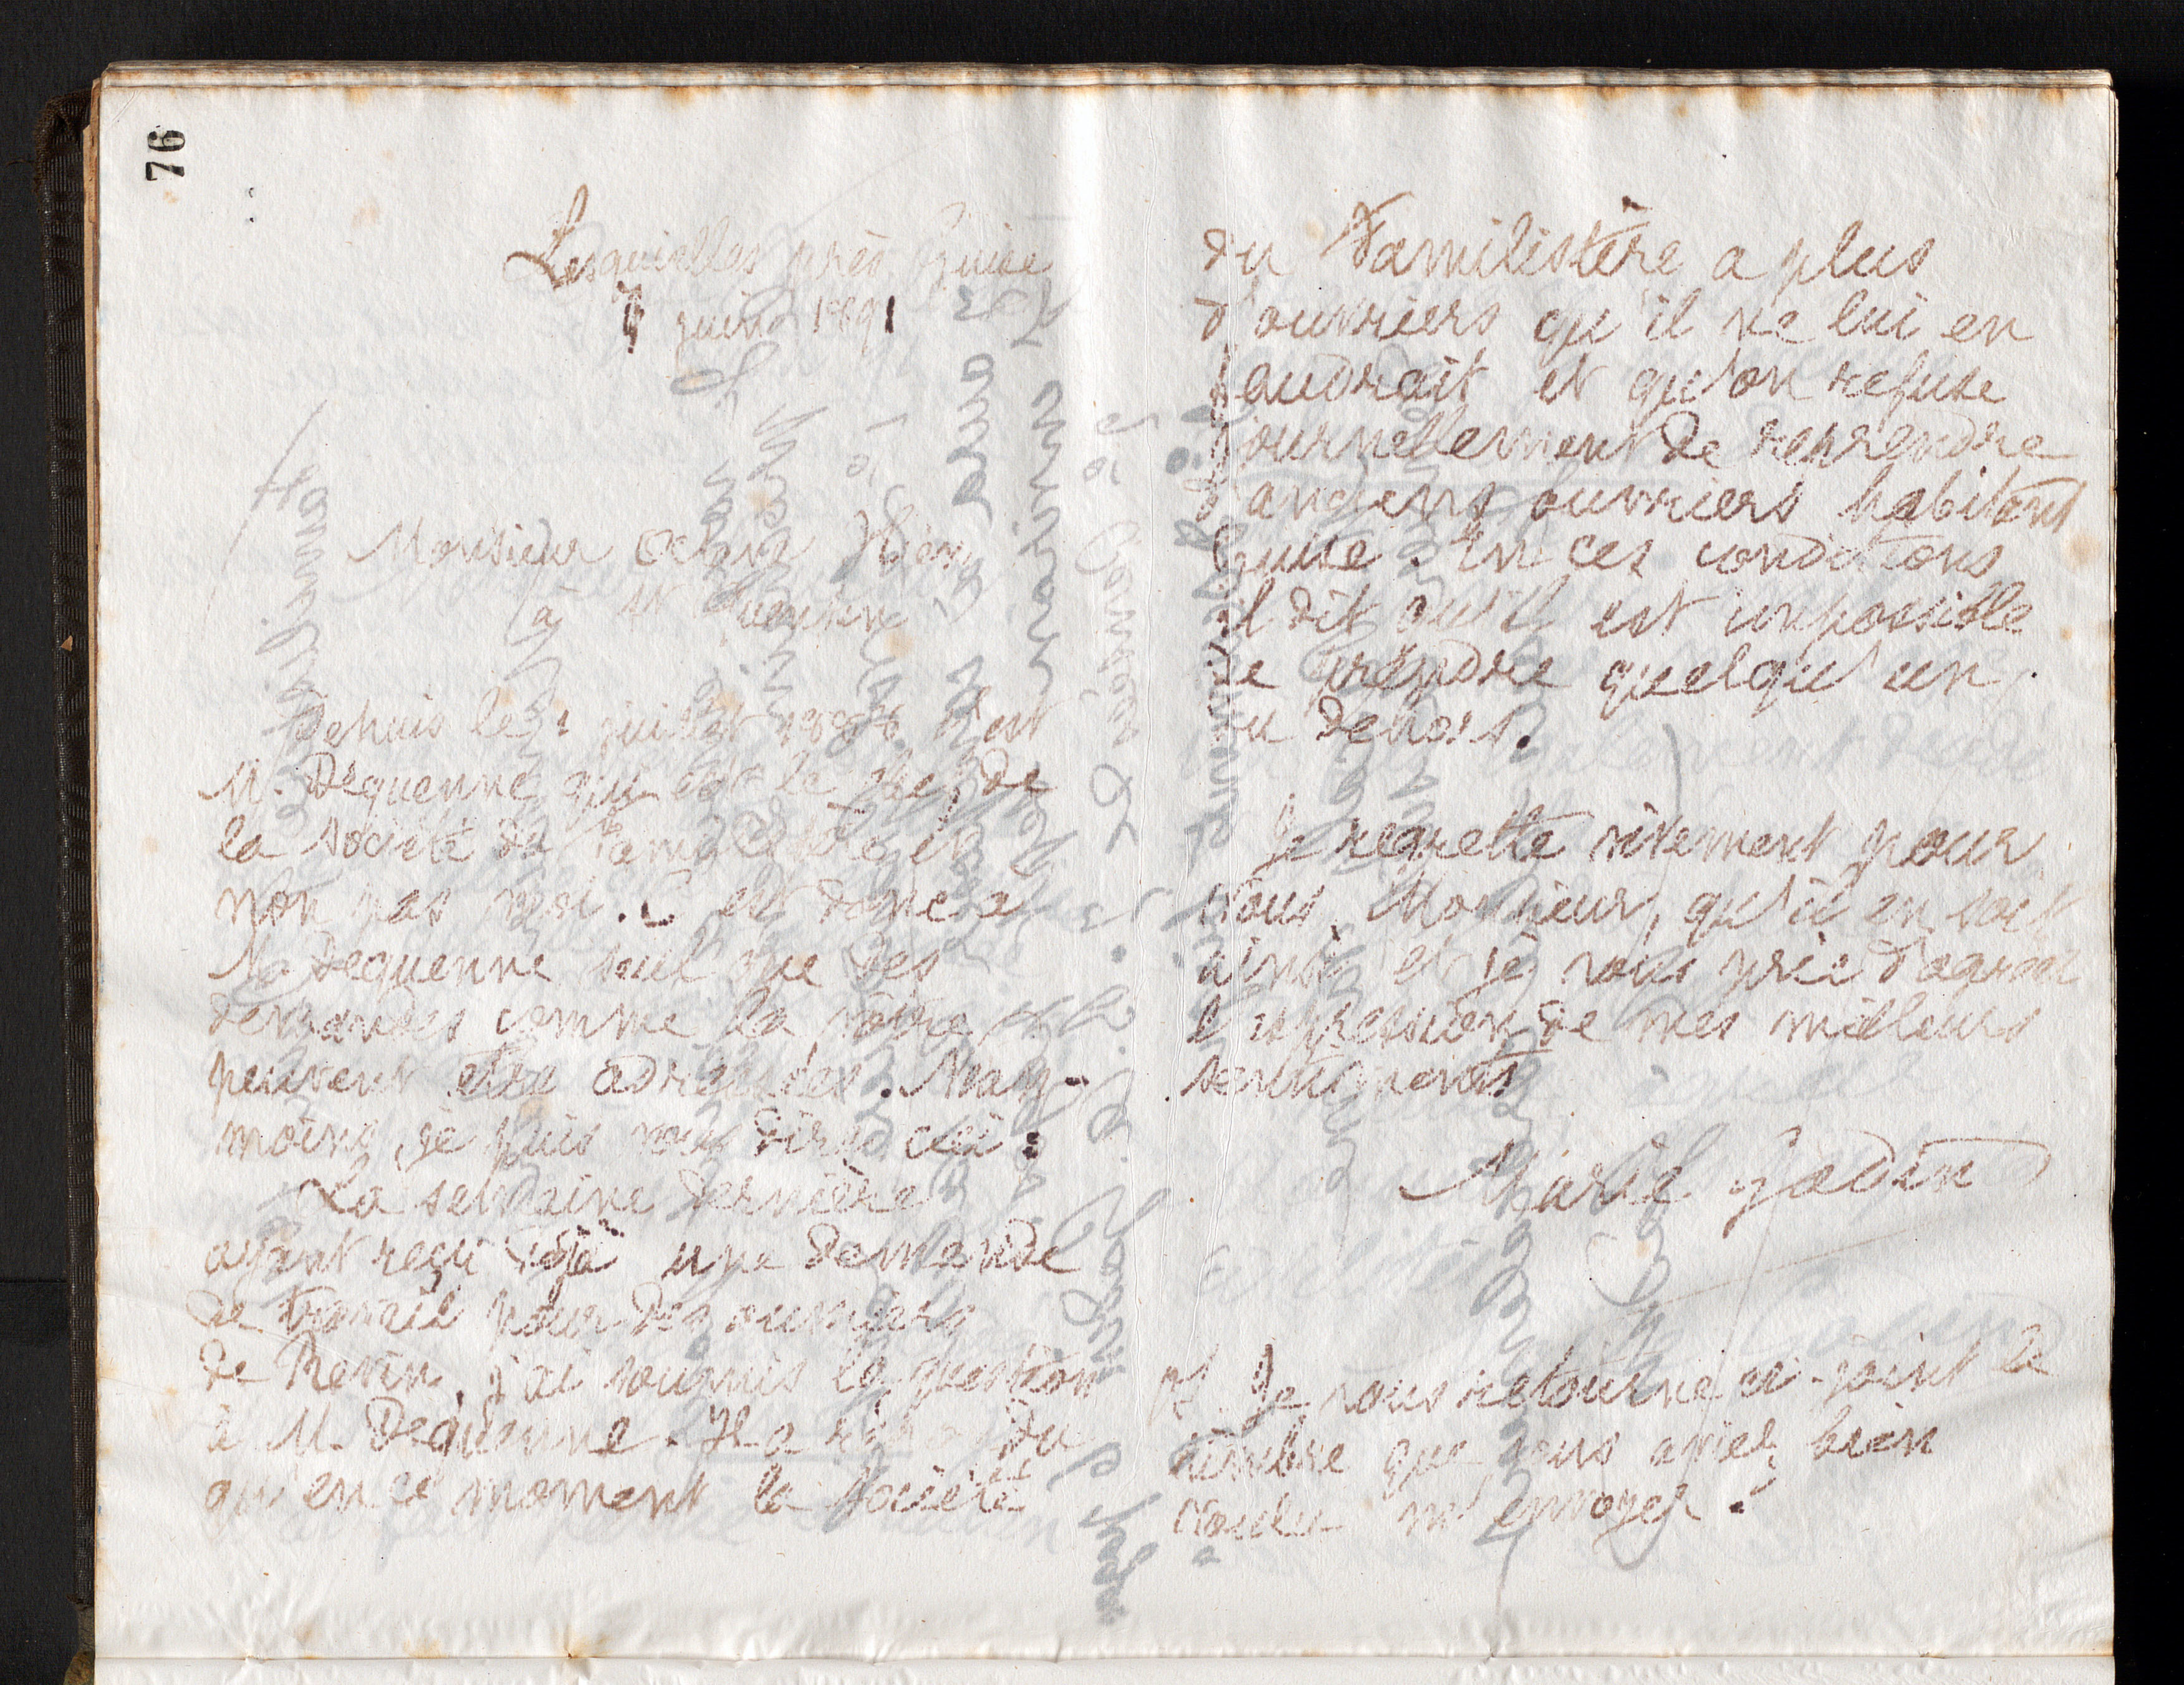 76
Lesquielles près Guise
juin 1891
Monsieur
à St Quentin
Depuis le 1 juillet 1888 c'est
M. Dequenne qui est le chef de
la société du Familistère et
non pas moi. C'est donc à
M. Dequenne seul que des
demandes comme la vôtre
peuvent être adressées. Néan-
moins, je puis vous dire ceci :
La semaine dernière
ayant reçu déjà une demande
de travail pour des ouvriers
de Revin, j'ai soumis la question
à M. Dequenne. Il a répondu
qu'en ce moment la Société
du Familistère a plus
d'ouvriers qu'il ne lui en
faudrait et qu'on refuse
journellement de reprendre
d'anciens ouvriers habitant
Guise. En ces conditions
il dit qu'il est impossible
de prendre quelqu'un
du dehors.
Je regrette vivement pour
vous, Monsieur, qu'il en soit
ainsi et je vous prie d'agréer
l'expression de mes meilleurs
sentiments
Marie Godin
Je vous retourne ci-joint le
timbre que vous aviez bien
voulu m'envoyer.